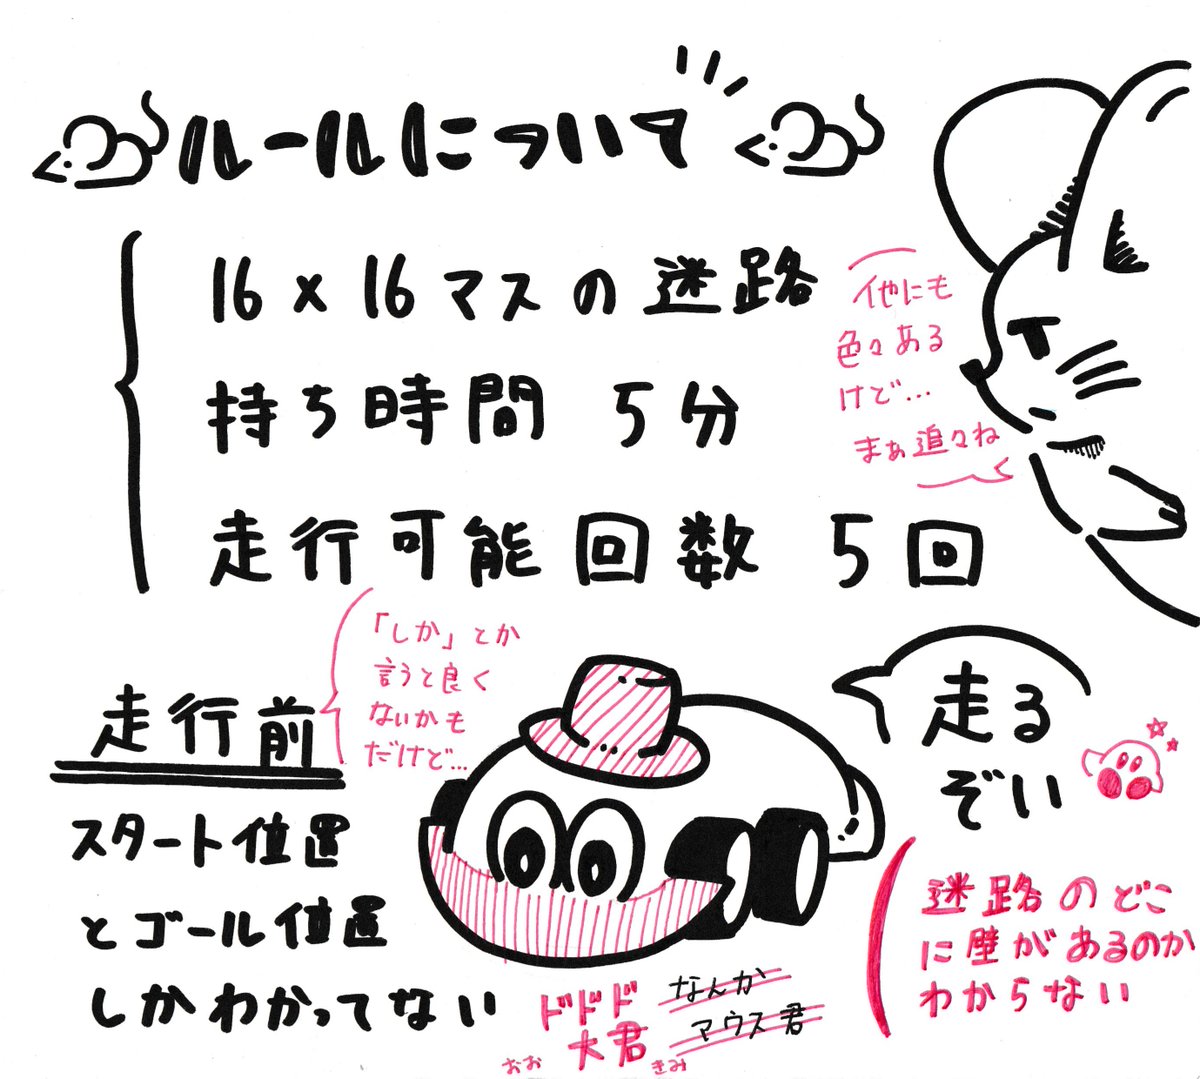 ルールについて
16×16マスの迷路
持ち時間 5分
走行可能回数 5回
他にも
色々ある
けど…
まぁ追々ね
走行前
「しか」とか
言うと良く
ないかも
だけど…
スタート位置
とゴール位置
しかわかってない
走る
ぞい
迷路のどこ
に壁があるのか
わからない
なんか
マウス君
ドドド
大君
おお きみ